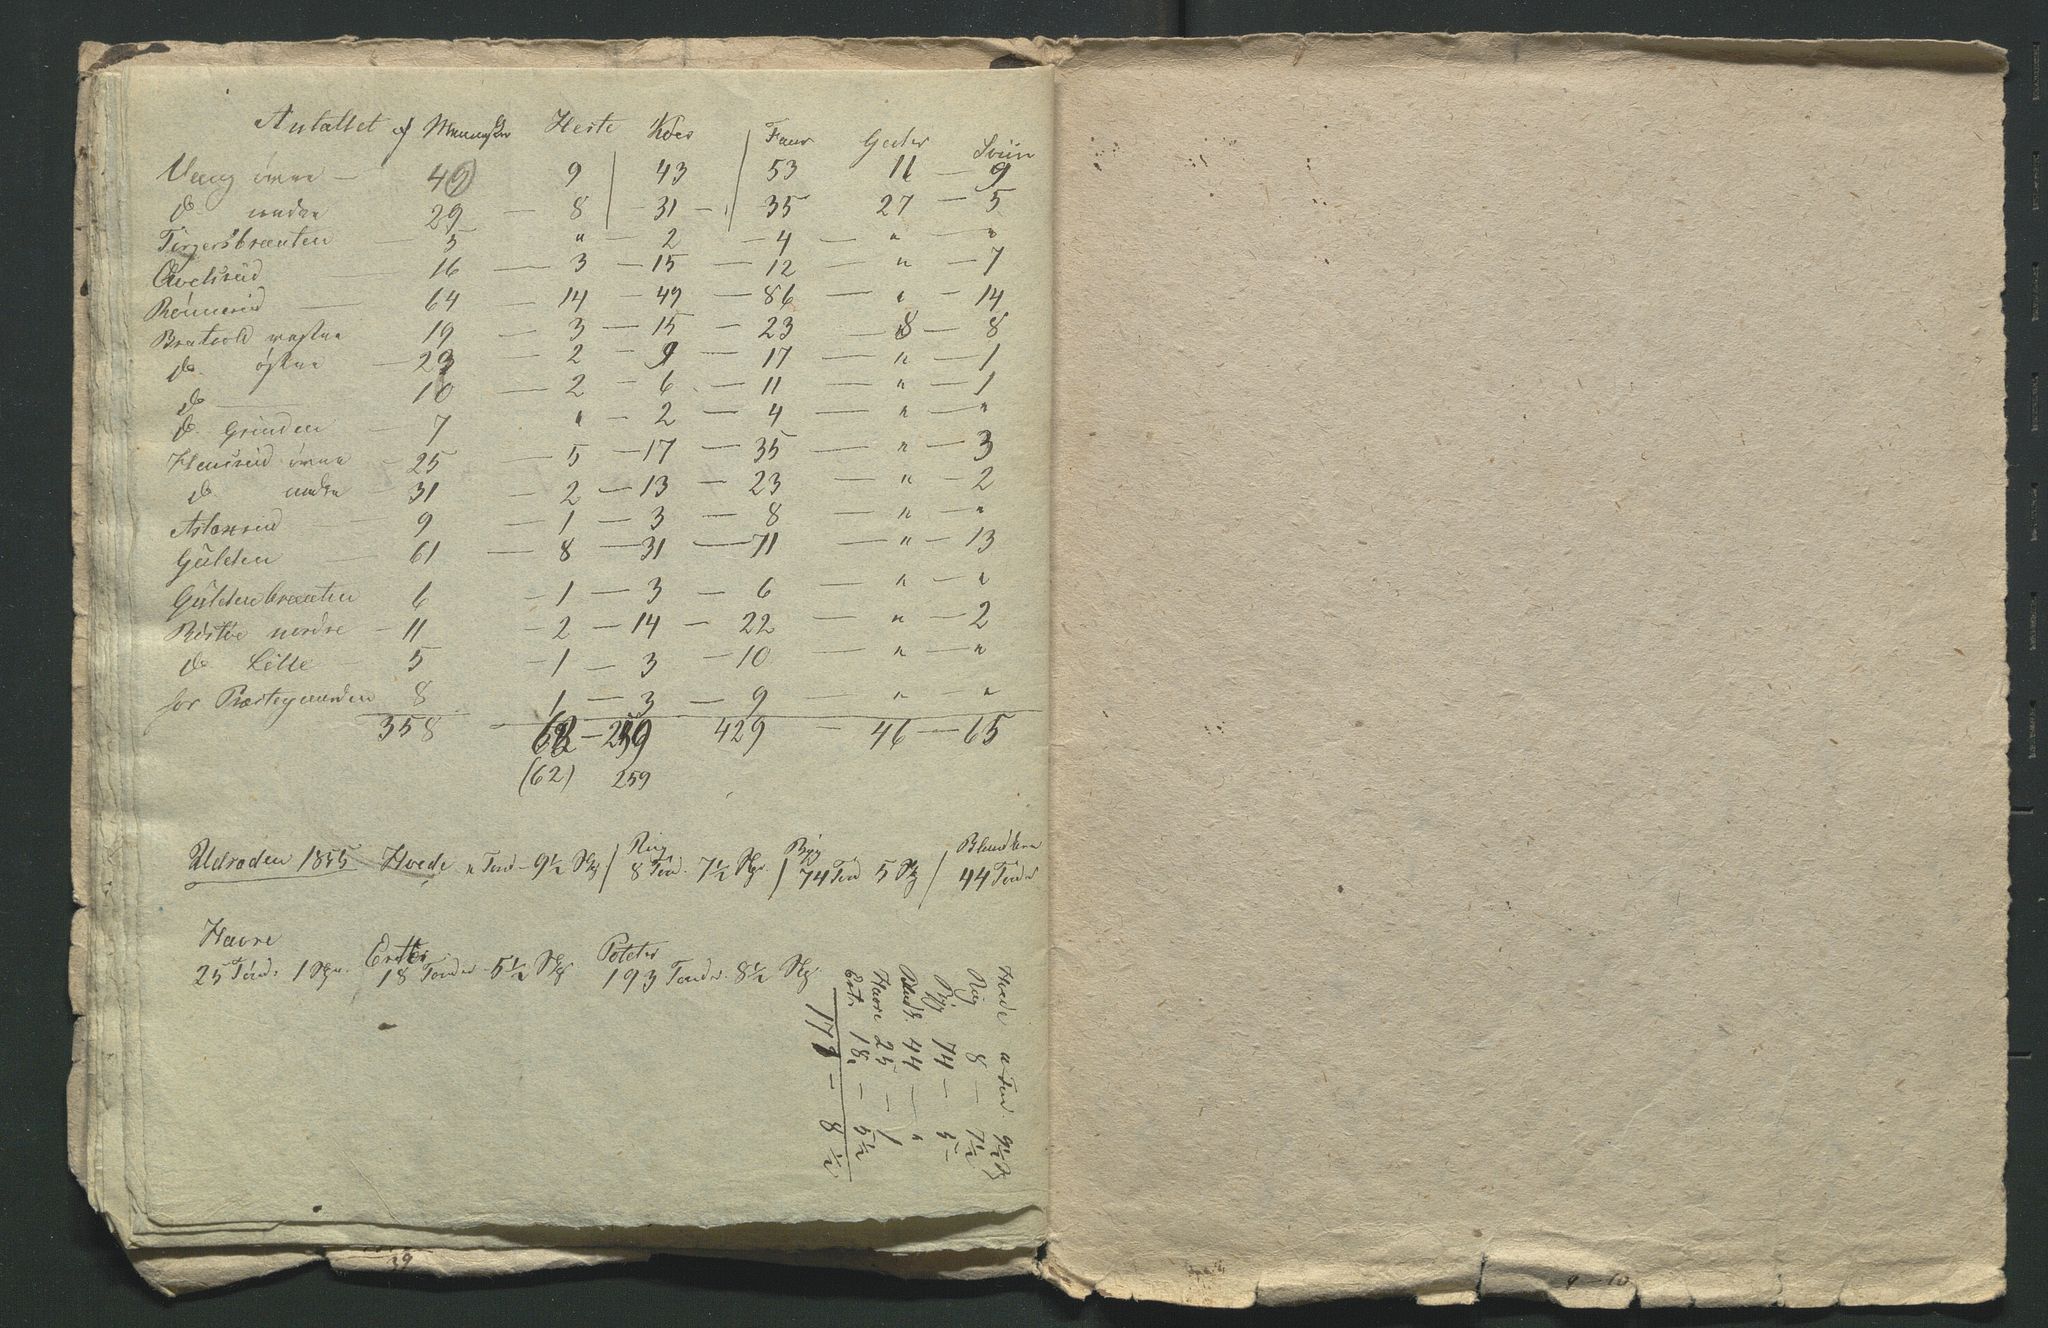 Antallet af Mennesker Heste Kiør Faar Geder Sviin
Vang övre — 42 9 43 53 11 — 9
do nedre 29 — 8 — 31 — 35 27 — 5
Torgersbraaten — 5 " — 2 — 4 — " — "
16 — 3 — 15 — 12 — " — 7
Rönnerud — 64 — 14 — 49 — 86 — " — 14
Bratvold vestre 19 — 3 — 15 — 23 — 8 — 8
do östre — 23 — 2 — 9 — 17 — " — 1
do — 10 — 2 — 6 — 11 — " — 1
do Grinden — 7 " — 2 — 4 — " — "
Houcrud övre — 25 — 5 — 17 — 35 — " — 3
do nedre — 31 — 2 — 13 — 23 — " — 2
Aslaksrud — 9 — 1 — 3 — 8 — " — "
Gulden — 61 — 8 — 31 — 71 — " — 13
Guldenbraaten 6 — 1 — 3 — 6 — " — "
Röstöe nordre — 11 — 2 — 14 — 22 — " — 2
do Lille — 5 — 1 — 3 — 10 — " — "
for Præstegaarden 8 1 — 3 — 9 — " — "
358 — 62 — 259 429 — 46 — 65
(62) 259
Udsæden 1855 Hvede " Tønd — 9½ Skp
Rug 8 Tønd. 7½ Skp.
Byg 74 Tønd 5 Skp
Blandkorn 44 Tønder
Havre 25 Tønd. 1 Skp.
Erter 18 Tønder 5½ Skp
Poteter 193 Tønder 8½ Skp.
Hvede " Tønd. 9½ Skp
Rug 8 — 7½
Byg 74 — 5 —
Bladk. 44 — "
Havre 25 — 1
Ert. 18 — 5½
171 — 8½
39
9 — 10